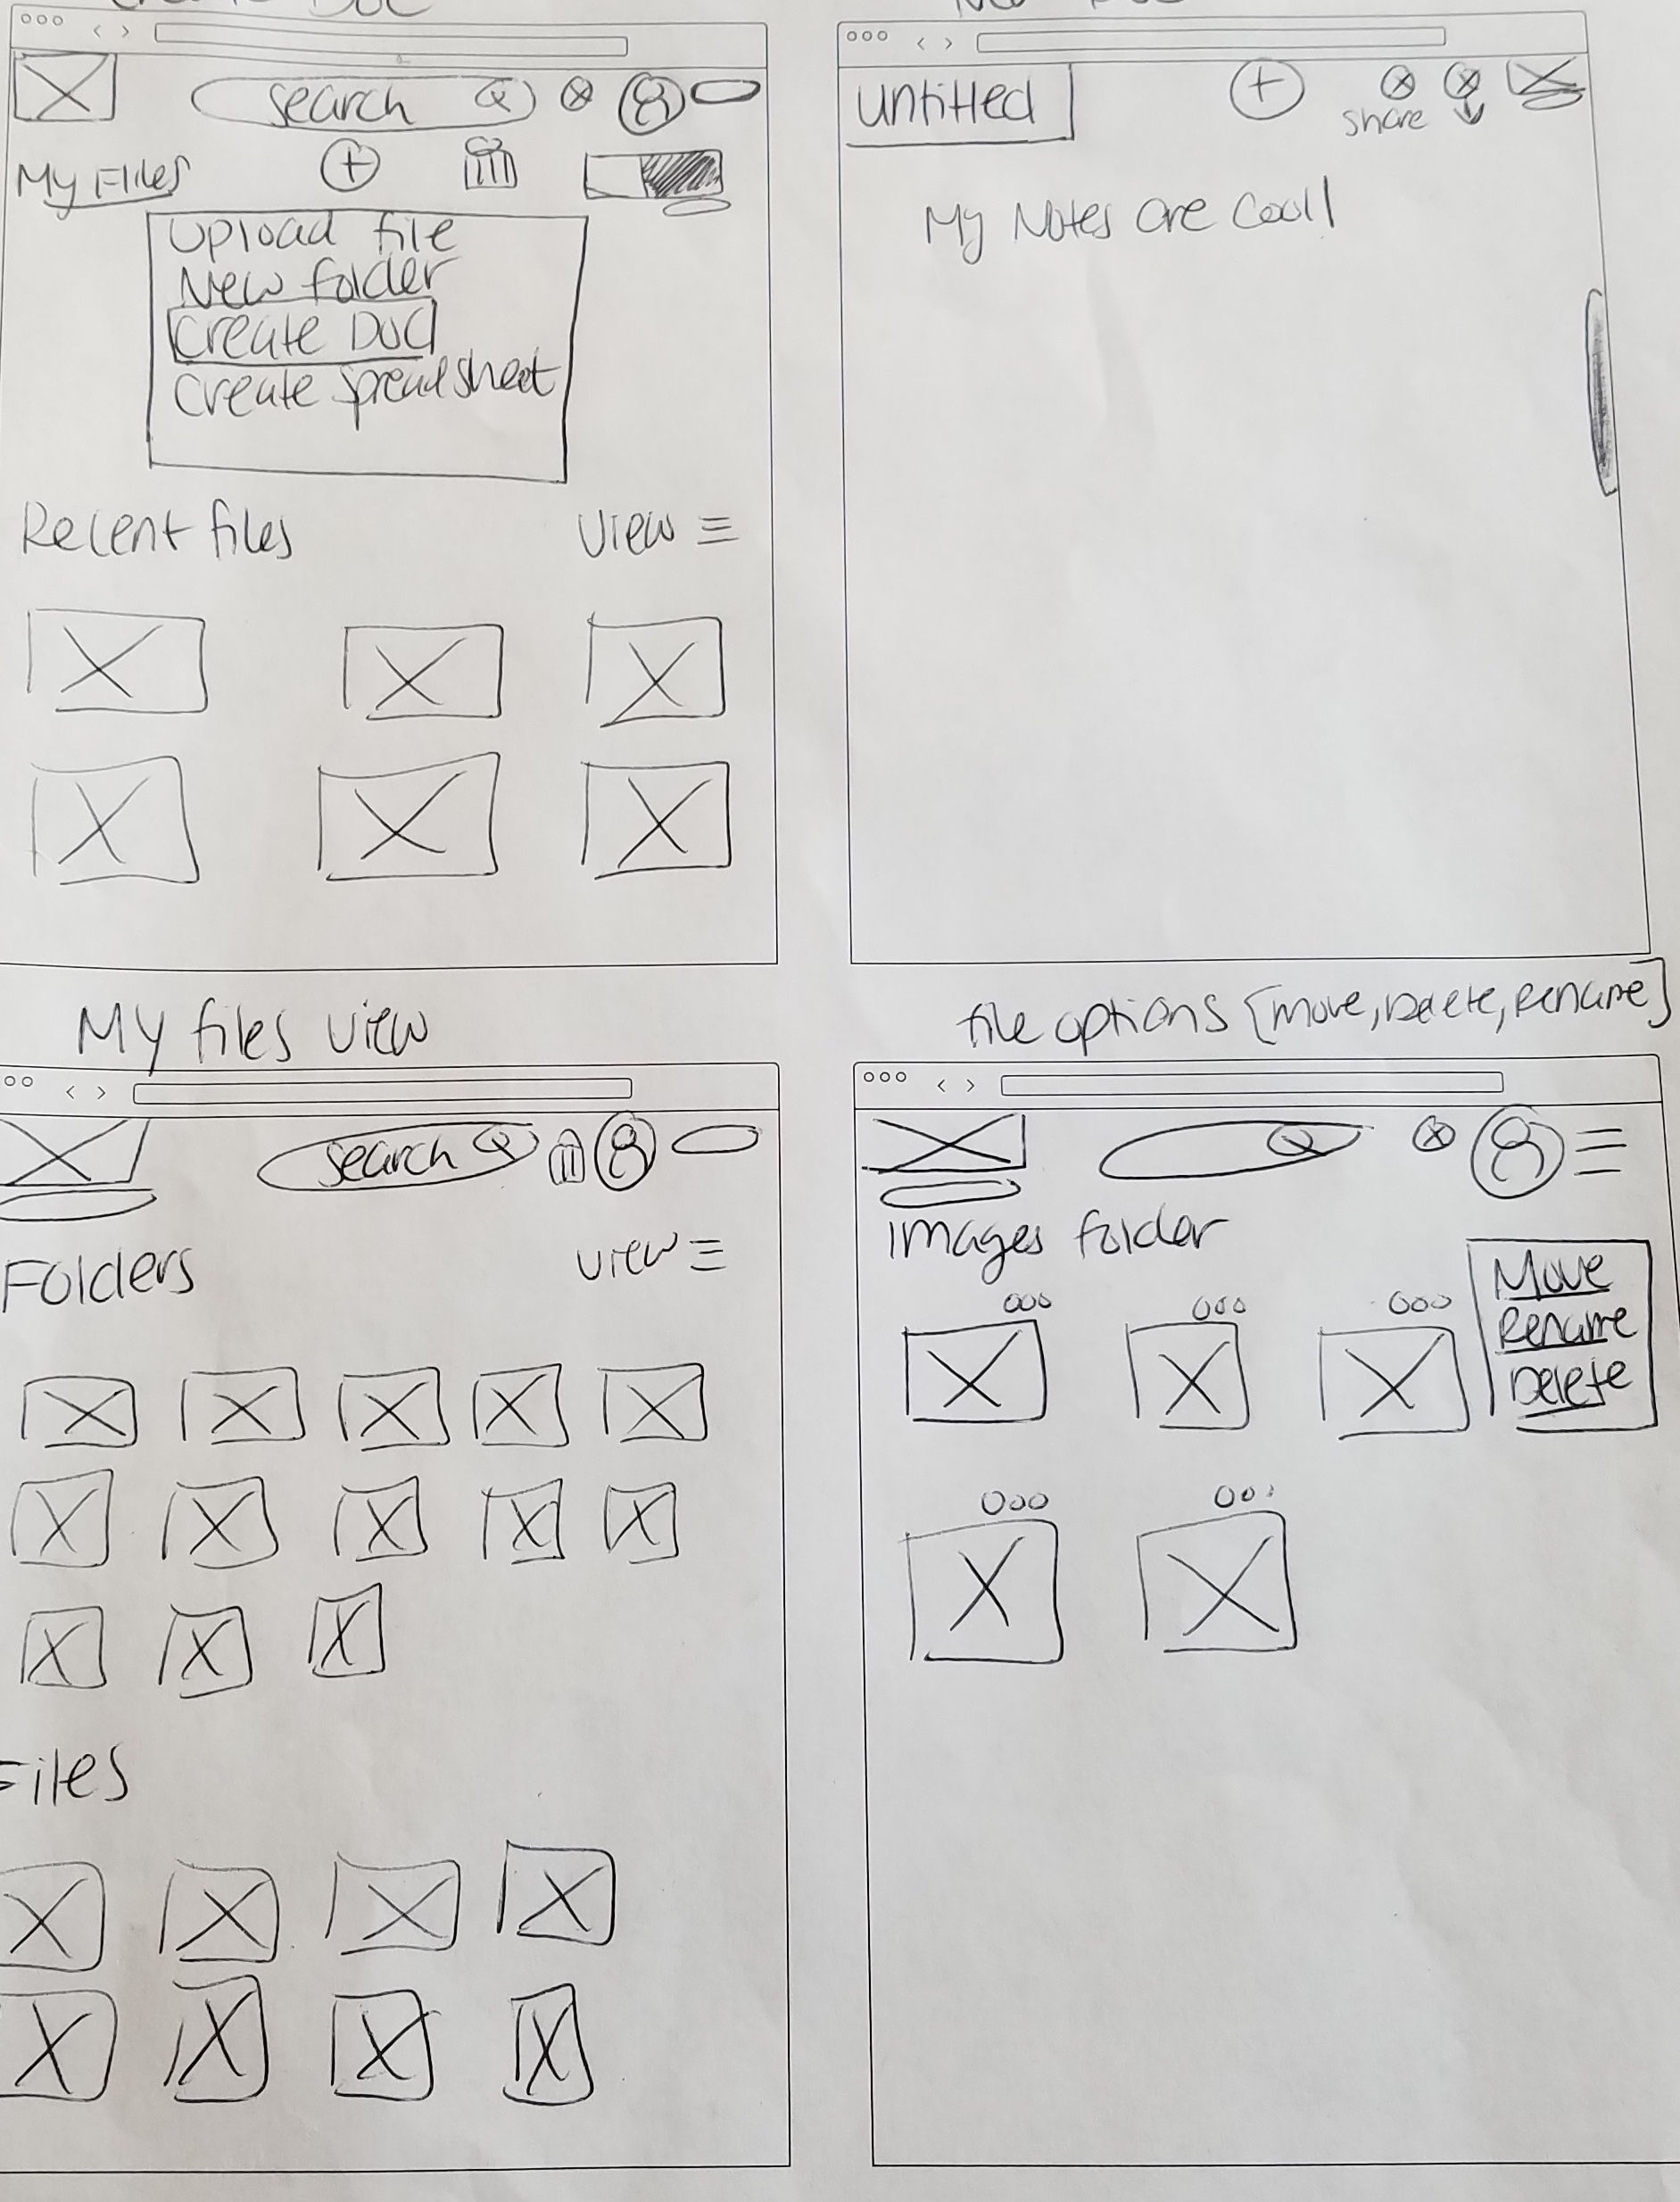 Create Doc
search
My Files
Upload file
New folder
Create Doc
Create spreadsheet
Recent files
View
New Doc
untitled
share
My Notes are Cool!
My files view
search
Folders
view
Files
file options [move, Delete, Rename]
Images folder
Move
Rename
Delete